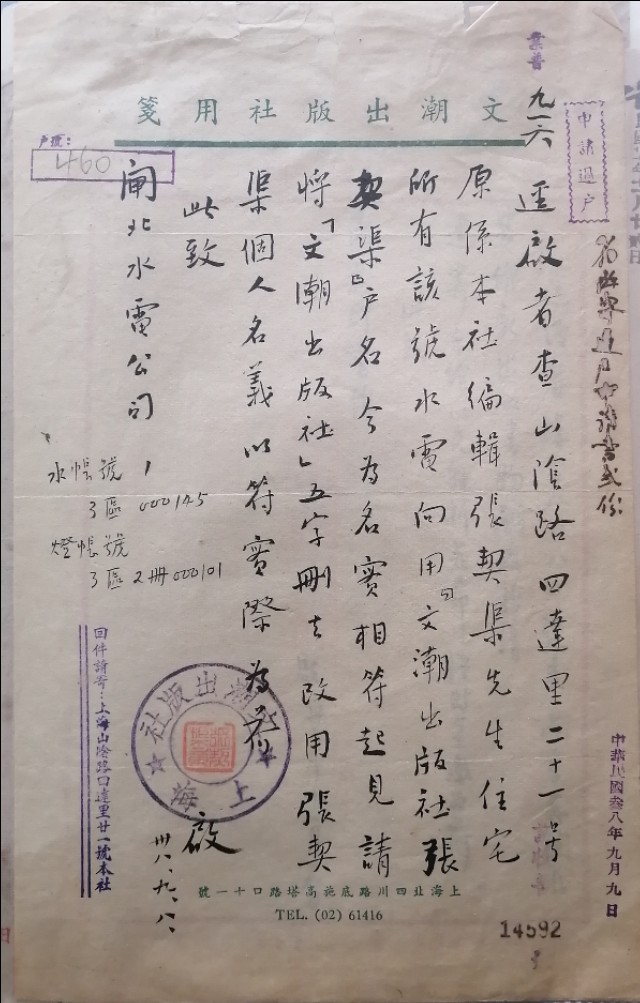 業普
文潮出版社用箋
申請過戶
九一六
戶號:
460
逕啟者查山陰路四達里二十一号
原係本社編輯張契渠先生住宅
所有該號水電向用「文潮出版社張
契渠」戶名今為名實相符起見請
將「文潮出版社」五字刪去改用張契
渠個人名義以符實際為荷
此致
閘北水電公司
啟
卅八、九、八、
水帳號
3區 000145
燈帳號
3區2冊000101
文潮出版社
上海
回件請寄:上海山陰路口達里廿一號本社
中華民國叁八年九月九日
上海北四川路底施高塔路口十一號
TEL. (02) 61416
14592